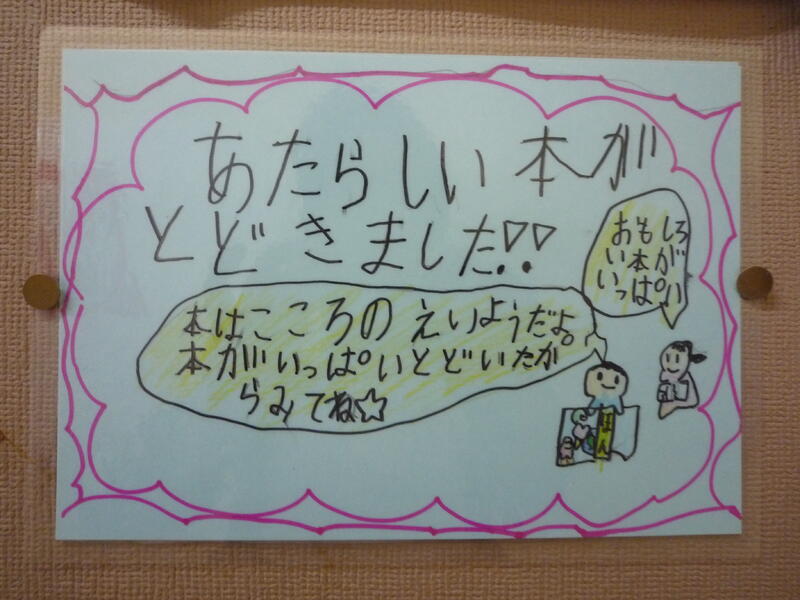 あたらしい本が
とどきました!!
おもしろ
い本が
いっぱい
本はこころのえいようだよ。
本がいっぱいとどいたか
らみてね☆
ほん